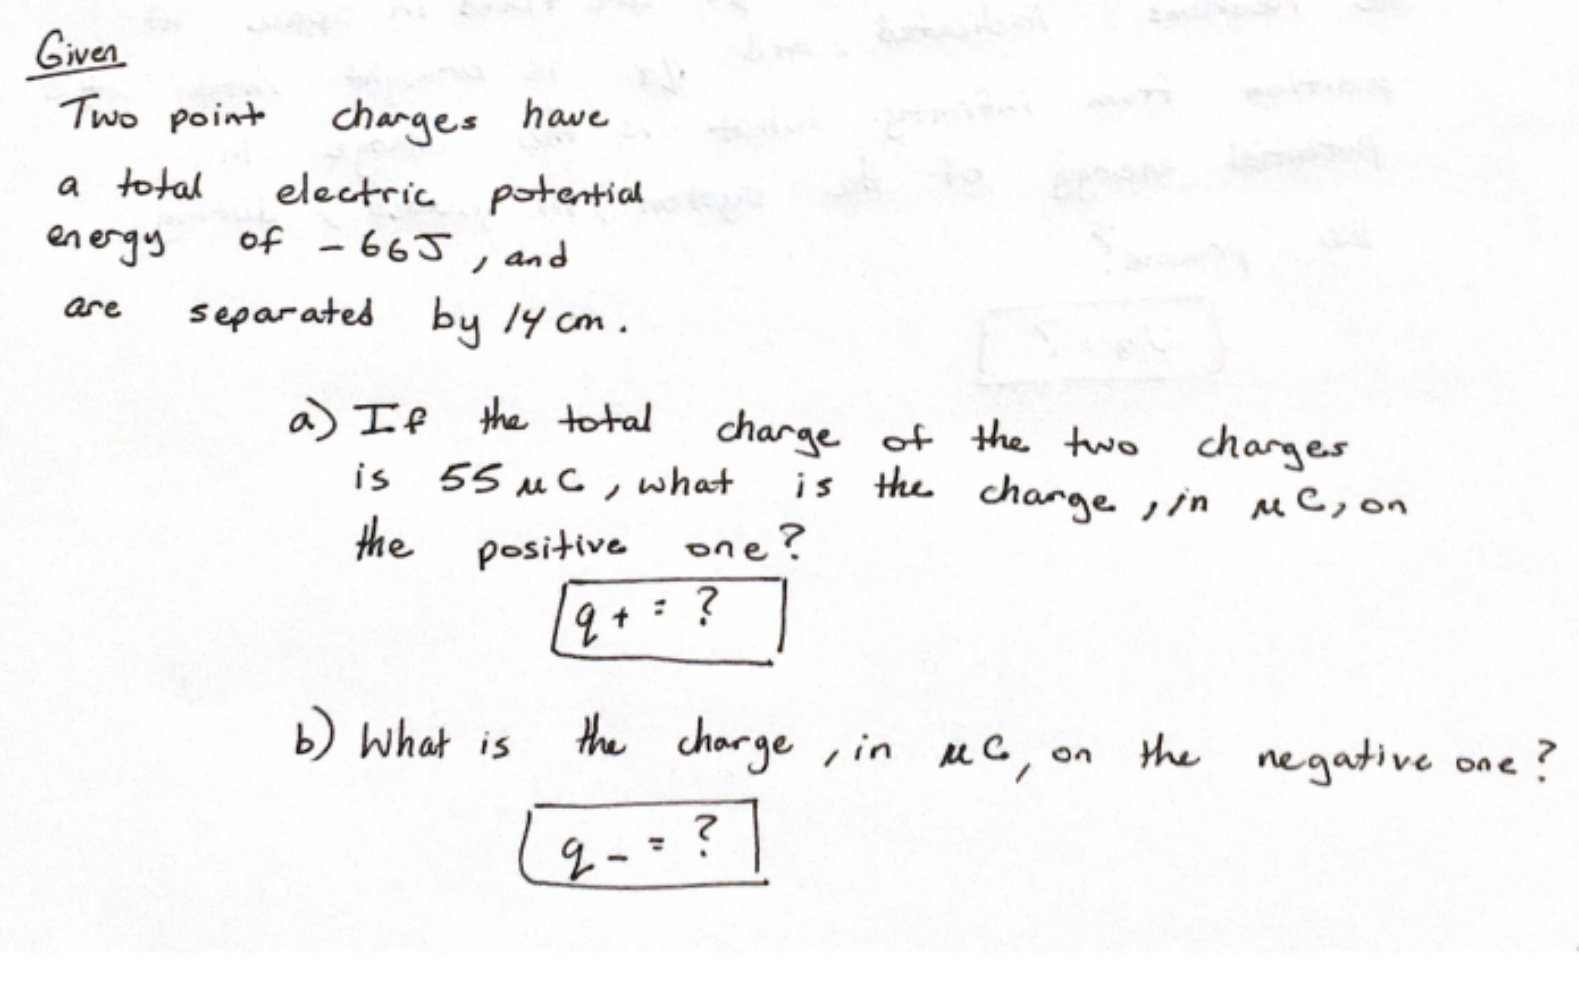 Given
Two point charges have
a total electric potential
energy of -66J, and
are separated by 14 cm.
a) If the total charge of the two charges
is 55 μC, what is the charge, in μC, on
the positive one?
q+ = ?
b) What is the charge, in μC, on the negative one?
q- = ?